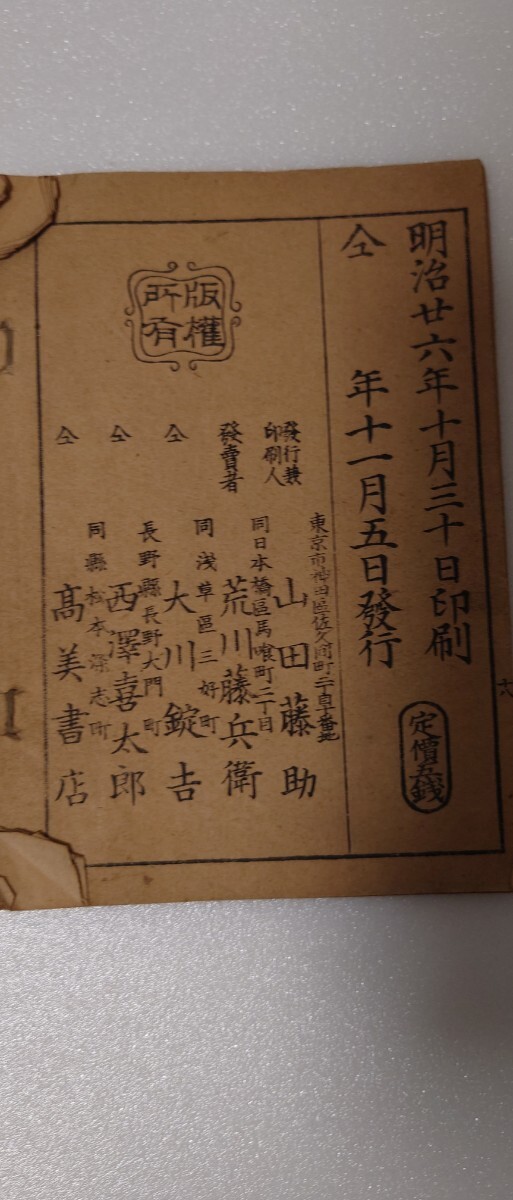 明治廿六年十月三十日印刷
仝 年十一月五日發行
定價五錢
版權
所有
發行兼
印刷人
東京市神田區佐久間町二丁目十番地
山田藤助
發賣者
同日本橋區馬喰町二丁目
荒川藤兵衛
仝
同浅草區三好町
大川錠吉
仝
長野縣長野大門町
西澤喜太郎
仝
同縣松本深志町
髙美書店
六